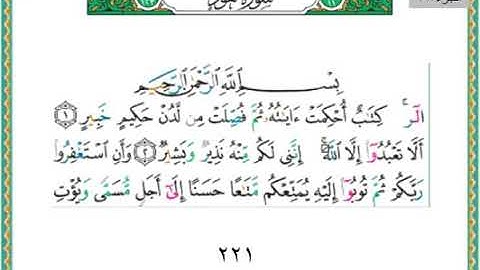 سورة هود
بِسْمِ اللَّهِ الرَّحْمَٰنِ الرَّحِيمِ
الٓر ۚ كِتَٰبٌ أُحْكِمَتْ ءَايَٰتُهُۥ ثُمَّ فُصِّلَتْ مِن لَّدُنْ حَكِيمٍ خَبِيرٍ ﴿١﴾
أَلَّا تَعْبُدُوٓا۟ إِلَّا اللَّهَ ۚ إِنَّنِى لَكُم مِّنْهُ نَذِيرٌ وَبَشِيرٌ ﴿٢﴾ وَأَنِ اسْتَغْفِرُوا۟
رَبَّكُمْ ثُمَّ تُوبُوٓا۟ إِلَيْهِ يُمَتِّعْكُم مَّتَٰعًا حَسَنًا إِلَىٰٓ أَجَلٍ مُّسَمًّى وَيُؤْتِ
٢٢١